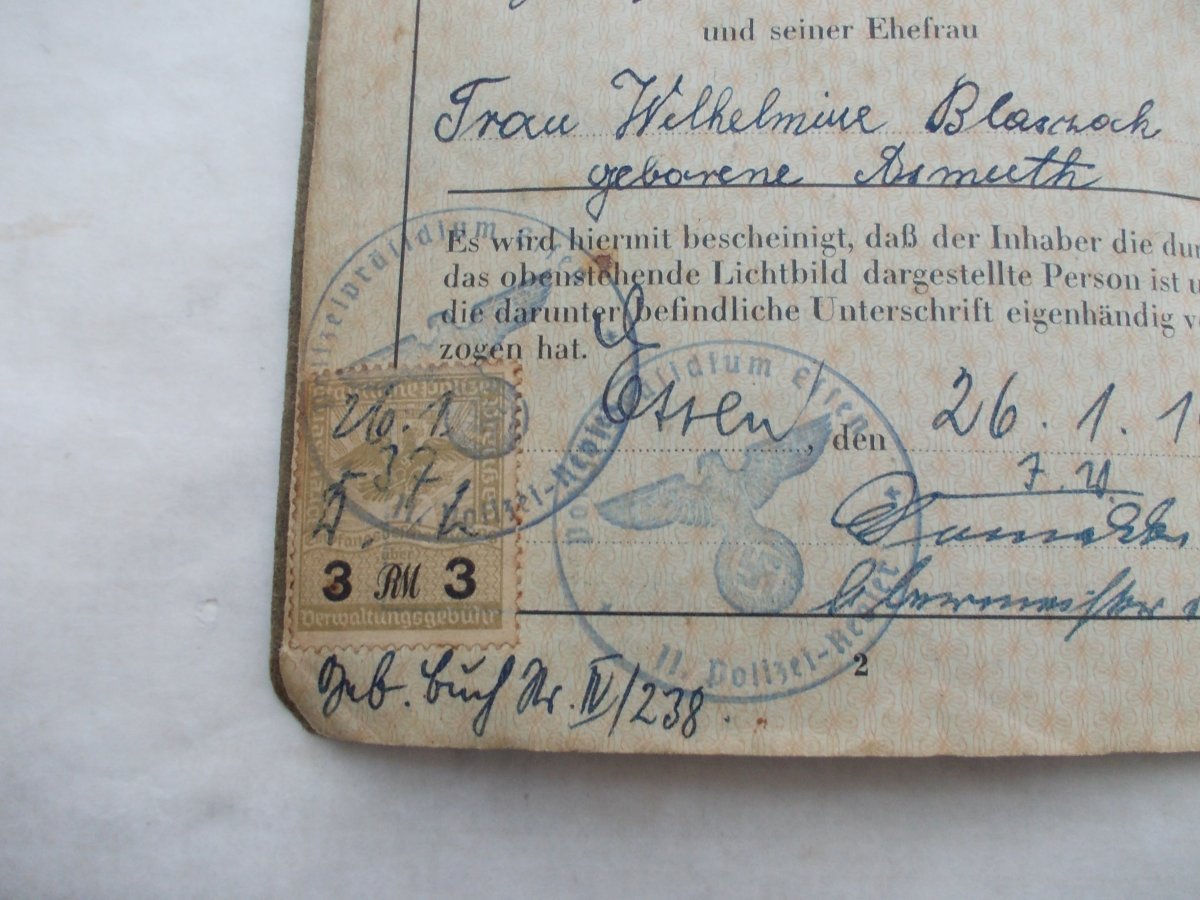 und seiner Ehefrau
Frau Wilhelmine Blasczock
geborene Asmuth
Es wird hiermit bescheinigt, daß der Inhaber die dur
das obenstehende Lichtbild dargestellte Person ist u
die darunter befindliche Unterschrift eigenhändig v
zogen hat.
Essen, den 26.1.1
Polizeipräsidium Essen
Polizei-Revier
Polizeipräsidium Essen
11. Polizei-Revier
26.1
37
3 RM 3
Verwaltungsgebühr
2
Geb. Buch Nr. IV/238.